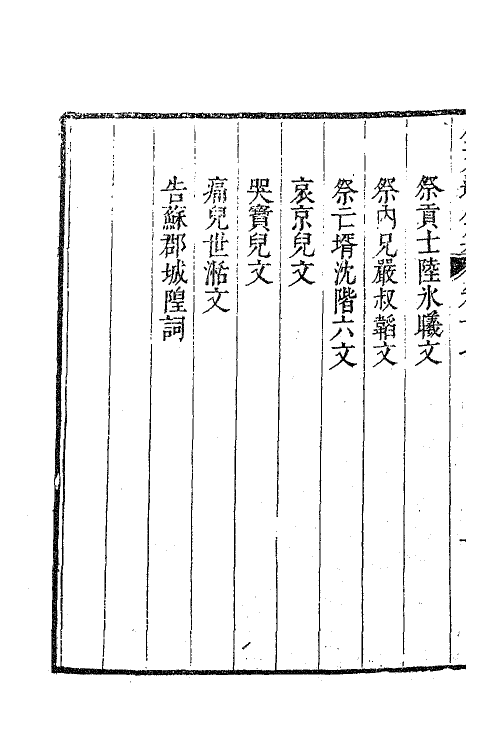 祭貢士陸氷𦡱文
祭內兄嚴叔韜文
祭亡壻沈階六文
哀京兒文
哭寶兒文
痛兒世湉文
告蘇郡城隍詞